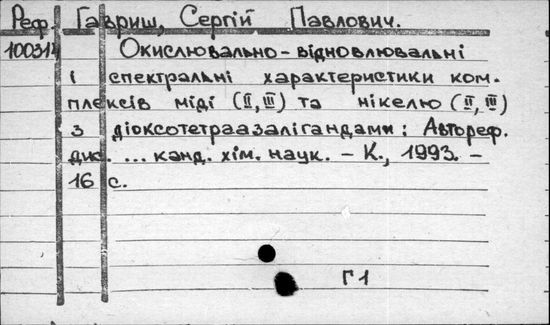 Реф. Гавриш, Сергій Павлович.
100314 Окислювально-відновлювальні
і спектральні характеристики ком-
плексів міді (ІІ, ІІІ) та нікелю (ІІ, ІІІ)
з діоксотетраазалігандами: Автореф.
дис. ... канд. хім. наук. – К., 1993. –
16 с.
Г1